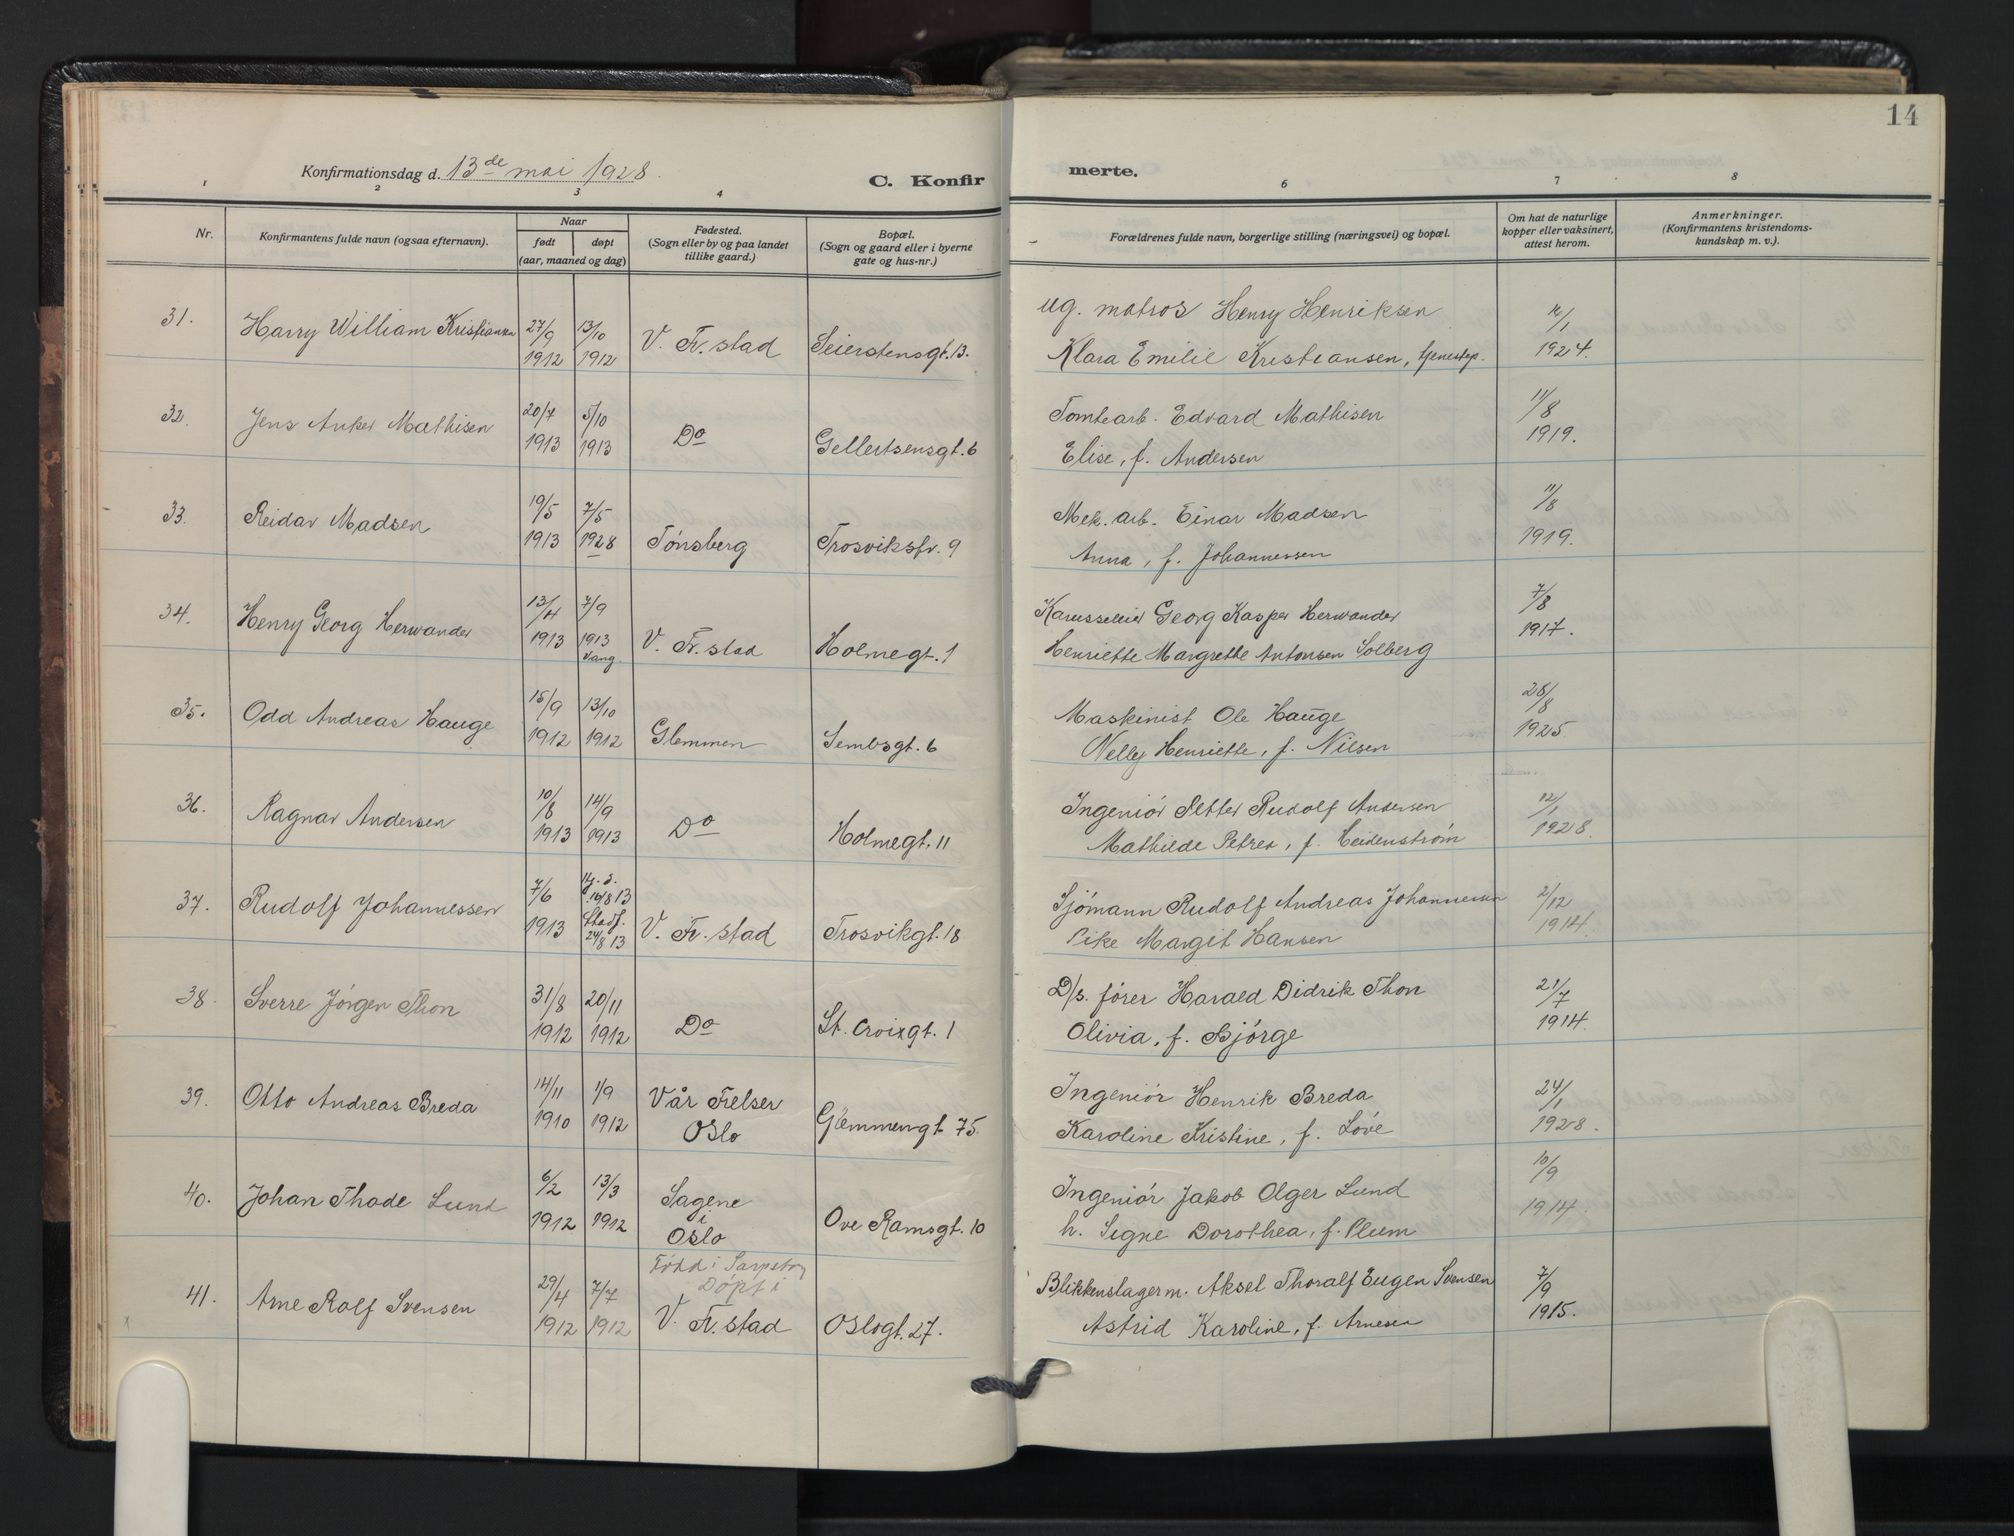 14
Konfirmationsdag d. 13de mai 1928.
C. Konfir
merte.
1 2 3 4 6 7 8
Nr.
Konfirmantens fulde navn (ogsaa efternavn).
Naar
født
døpt
(aar, maaned og dag)
Fødested.
(Sogn eller by og paa landet
tillike gaard.)
Bopæl.
(Sogn og gaard eller i byerne
gate og hus-nr.)
Forældrenes fulde navn, borgerlige stilling (næringsvei) og bopæl.
Om hat de naturlige
kopper eller vaksinert,
attest herom.
Anmerkninger.
(Konfirmantens kristendoms-
kundskap m. v.).
31. Harry William Kristiansen 27/9 1912 13/10 1912 V. Fr.stad Seierstensgt. 13.
ug. matros Henry Henriksen
Klara Emilie Kristiansen, tjenestep. 1924.
32. Jens Anker Mathisen 20/7 1913 5/10 1913 Do Gellertsensgt. 6
Tomtearb. Edvard Mathisen
Elise, f. Andersen 11/8 1919.
33. Reidar Madsen 19/5 1913 7/5 1928 Tönsberg Trosviksfr. 9
Mek. arb. Einar Madsen
Anna, f. Johannessen 11/8 1919.
34. Henry Georg Herwander 13/4 1913 7/9 1913 Vang. V. Fr.stad Holmegt. 1
Karusseleier Georg Kasper Herwander
Henriette Margrethe Antonsen Solberg 7/8 1917.
35. Odd Andreas Hauge 15/9 1912 13/10 1912 Glemmen Sembsgt. 6
Maskinist Ole Hauge
Nelly Henriette, f. Nilsen 28/8 1925.
36. Ragnar Andersen 10/8 1913 14/9 1913 Do Holmegt. 11
Ingeniör Petter Rudolf Andersen
Mathilde Petrea, f. Heidenström 12/1 1928.
37. Rudolf Johannessen 7/6 1913 hj. d. 14/8 13 Stadf. 24/8 13 V. Fr.stad Trosvikgt. 18
Sjömann Rudolf Andreas Johannessen
Pike Margit Hansen 2/12 1914.
38. Sverre Jörgen Thon 31/8 1912 20/11 1912 Do St. Croixgt. 1
D/s. förer Harald Didrik Thon
Olivia, f. Bjórge 21/7 1914.
39. Otto Andreas Breda 14/11 1910 1/9 1912 Vår Frelser Oslo Glemmengt. 75
Ingeniör Henrik Breda
Karoline Kristine, f. Löve 24/1 1928.
40. Johan Thade Lund 6/2 1912 13/3 1912 Sagene i Oslo Ove Ramsgt. 10
Ingeniör Jakob Olger Lund
h. Signe Dorothea, f. Plum 10/9 1914.
41. Arne Rolf Svensen 29/4 1912 7/7 1912 Född i Sarpsborg Döpt i V. Fr.stad Oslogt. 27.
Blikkenslagerm. Aksel Thoralf Eugen Svensen
Astrid Karoline, f. Arnesen 7/9 1915.
x